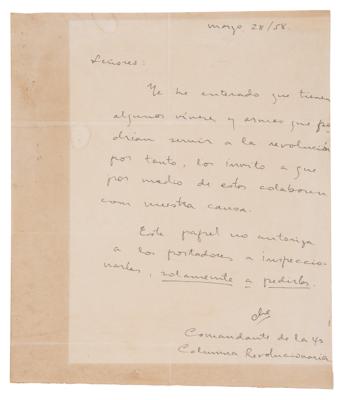 marzo 28/58.
Señores:
Me he enterado que tienen
algunos víveres y armas que po
drían servir a la revolución
por tanto, los invito a que
por medio de estos colaboren
con nuestra causa.
Este papel no autoriza
a los portadores a inspeccio
narles, solamente a pedirlos.
che
Comandante de la 4a
Columna Revolucionaria